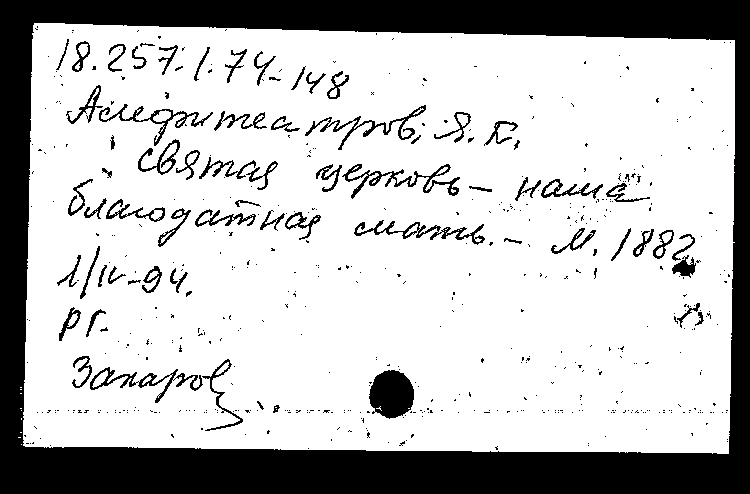 18.257.1.74-148
Амфитеатров, Я. К.
Святая церковь - наша
благодатная мать. - М. 1882
1/IV-94.
РГ.
Захаров